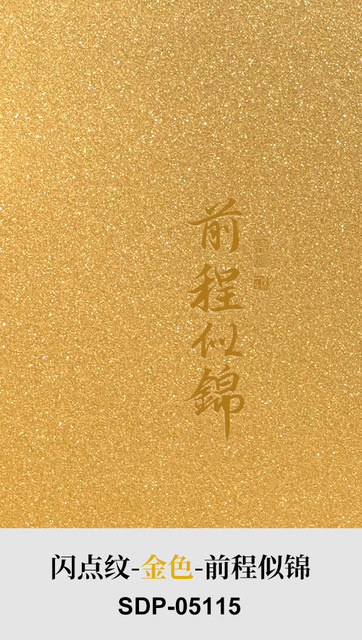 前程似錦
闪点纹-金色-前程似锦
SDP-05115